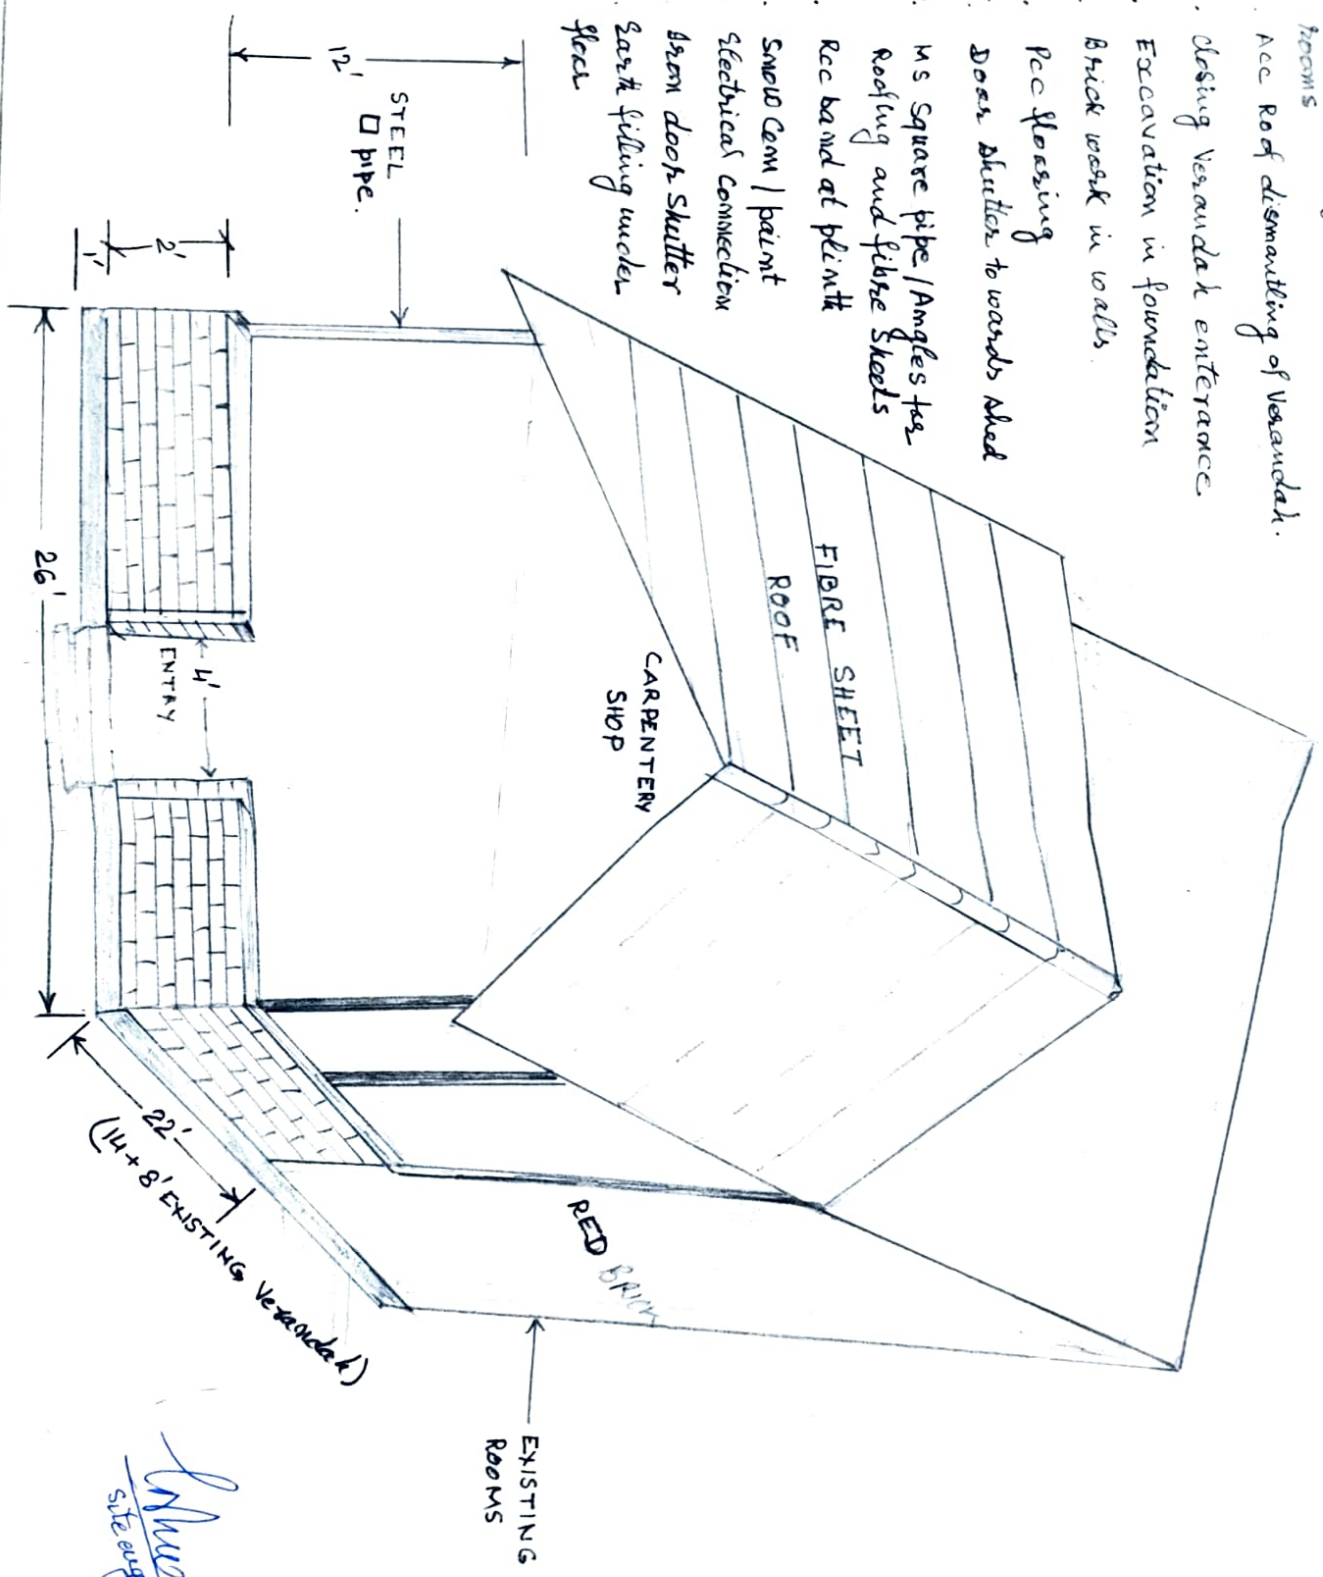 rooms
. Acc Roof dismantling of Verandah.
. closing Verandah enterance
. Excavation in foundation
. Brick work in walls.
. Pcc flooring
. Door shutter towards shed
. MS Square pipe/Angles for
Roofing and fibre Sheets
. Rcc band at plinth
. Snow Cem/paint
. Electrical Connection
. Iron door Shutter
. Earth filling under
floor
12'
STEEL
□ pipe.
2'
1'
FIBRE SHEET
ROOF
CARPENTERY
SHOP
4'
ENTRY
26'
22'
(14+8' EXISTING Verandah)
RED BRICK
EXISTING
ROOMS
Site eng